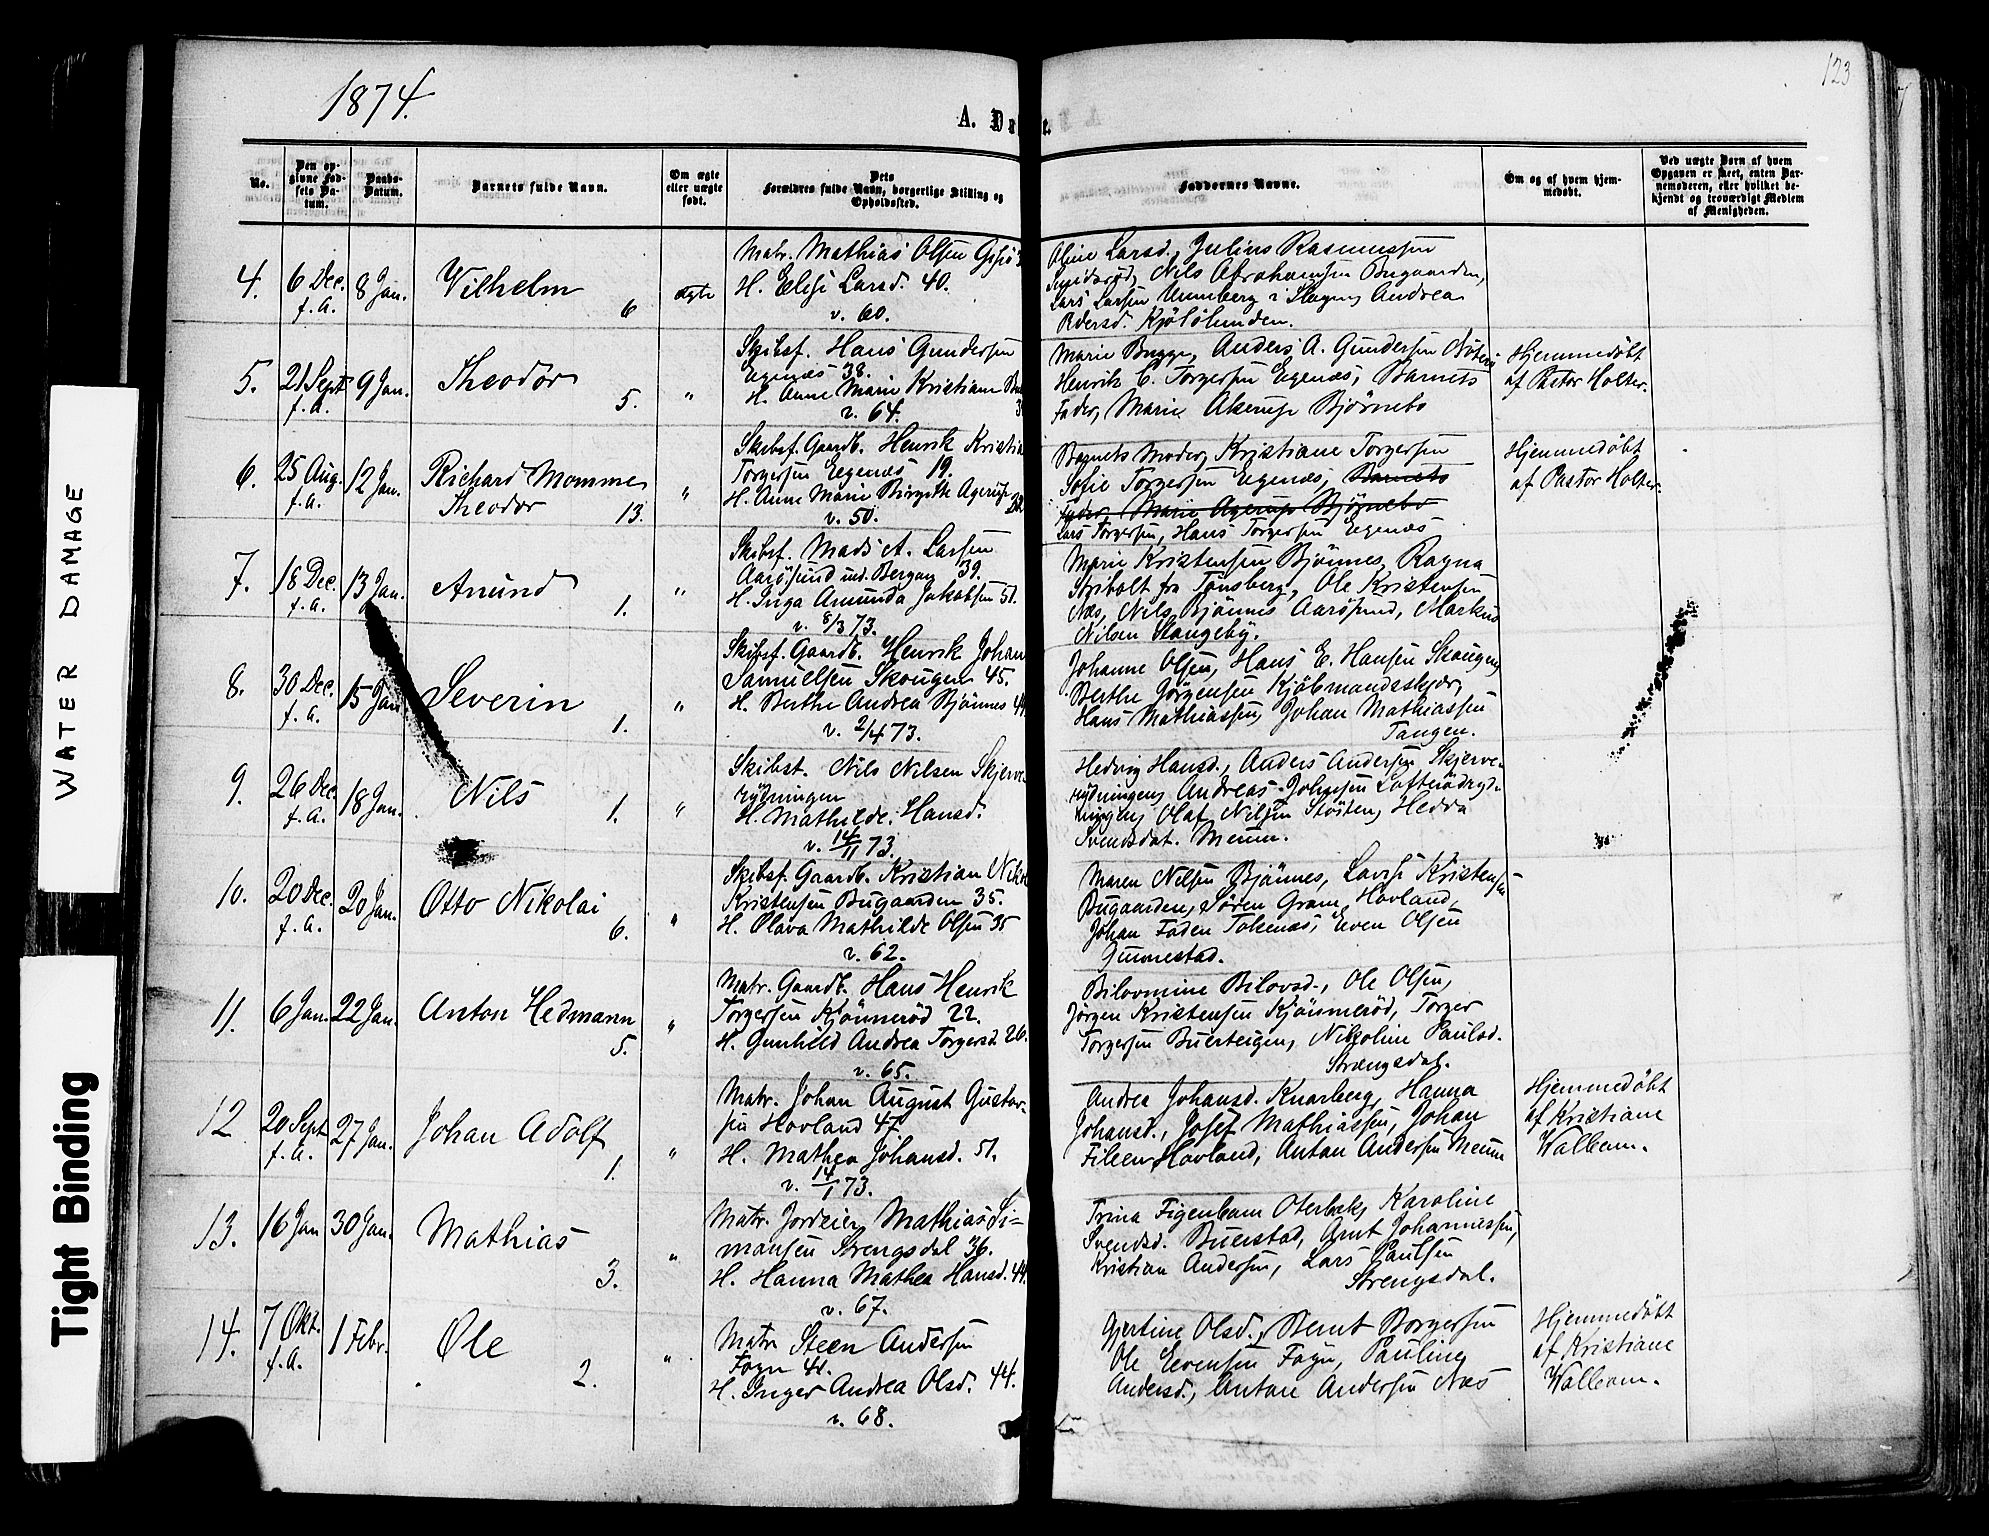 1874.
123
A. D
t.
No.
Den op-
givne Fød-
sels Da-
tum.
Daabs-
Datum.
Barnets fulde Navn.
Om ægte
eller uægte
født.
Dets
Forældres fulde Navn, borgerlige Stilling og
Opholdssted.
Faddernes Navne.
Om og af hvem hjem-
medøbt.
Ved uægte Børn af hvem
Opgaven er skeet, enten Bar-
nemoderen, eller hvilket be-
kjendt og troværdigt Medlem
af Menigheden.
4. 6 Dec. f. A. 8 Jan. Vilhelm 6 ægte
Matr. Mathias Olsen
H. Elise Larsd. 40.
v. 60.
Oline Larsd., Julius Rasmussen
Nils Abrahamsen Bugaarden,
Lars Larsen Unneberg i Slagen, Andrea
Pedersd.
5. 21 Sept f. A. 9 Jan. Theodor 5. "
Skibsf. Hans Gundersen
Eegenæs 38.
H. Anne Marie Kristiane
v. 64.
Marie Bugge, Anders A. Gundersen
Henrik C. Torgersen Eegenæs, Barnets
Fader, Marie Akerup Bjørnebo
Hjemmedøbt
af Pastor Holter.
6. 25 Aug. f. A. 12 Jan. Richard Momme
Theodor 13. "
Skibsf. Gaardb. Henrik Kristia
Torgersen Eegenæs 19.
H. Anne Marie Birgitte Agerup
v. 50.
Barnets Moder, Kristiane Torgersen
Sofie Torgersen Eegenæs, Barnets
Fader, Marie Agerup Bjørnebo
Lars Torgersen, Hans Torgersen Eegenæs
Hjemmedøbt
af Pastor Holter.
7. 18 Dec. f. A. 13 Jan. Anund 1. "
Skibsf. Mads A. Larsen
Aarøsund ind. Bergan 39.
H. Inga Amunda Jakobsen 51.
v. 8/3 73.
Marie Kristensen Bjønnes, Ragna
fra Tønsberg, Ole Kristensen
Næs, Nils Bjønnes Aarøsund, Markus
Nilsen Stangeby.
8. 30 Dec. f. A. 15 Jan Severin 1. "
Skibsf. Gaardb. Henrik Johan
Samuelsen Skougen 45.
H. Berthe Andrea Bjønnes 44.
v. 2/4 73.
Johanne Olsen, Hans E. Hansen Skougen,
Berthe Jørgensen Kjøbmandskjær,
Hans Mathiassen, Johan Mathiassen
Tangen.
9. 26 Dec. f. A. 18 Jan. Nils 1. "
Skibst. Nils Nilsen Skjerve-
rydningen
H. Mathilde Hansd.
v. 14/11 73.
Hedvig Hansd., Anders Andersen Skjerve-
rydningen, Andreas Johnsen
Olaf Nilsen Støiten, Hedva
Svendsdat. Meum.
10. 20 Dec. f. A. 20 Jan. Otto Nikolai 6. "
Skibsf. Gaardb. Kristian Niko
Kristensen Bugaarden 35.
H. Olava Mathilde Olsen 35
v. 62.
Maren Nilsen Bjønnes, Lovise Kristensen
Bugaarden, Søren Gram, Hovland,
Johan Faden Tokenæs, Even Olsen
Gunnestad.
11. 6 Jan. 22 Jan. Anton Hedmann 5. "
Matr. Gaardb. Hans Henrik
Torgersen Kjønnerød 22.
H. Gunhild Andrea Torgersd. 26.
v. 65.
Bilovmine Bilovsd., Ole Olsen,
Jørgen Kristensen Kjønnerød, Torger
Torgersen Buersteigen, Nikoline Paulsd.
Strængsdal.
12 20 Sept f. A. 27 Jan. Johan Adolf 1. "
Matr. Johan August Gustav-
sen Hovland 47
H. Mathea Johansd. 51.
v. 14/1 73.
Andrea Johansd. Knarberg, Hanna
Johansd., Josef Mathiassen, Johan
Hovland, Anton Andersen Meum
Hjemmedøbt
af Kristiane
Walleam.
13. 16 Jan 30 Jan. Mathias 3. "
Matr. Jordeier Mathias Si-
monsen Strengsdal 36.
H. Hanna Mathea Hansd. 44.
v. 67.
Trina Figenbam Oterbæk, Karoline
Svendsd. Buerstad, Arnt Johannessen,
Kristian Andersen, Lars Paulsen
Strengsdal.
14. 7 Okt. f. A. 1 Febr. Ole 2. "
Matr. Steen Andersen
Fogn 41.
H. Inger Andrea Olsd. 44.
v. 68.
Gjertine Olsd., Bernt Borgersen
Ole Evensen Fogn, Pauline
Andersd., Anton Andersen Næs
Hjemmedøbt
af Kristiane
Walleam.
WATER DAMAGE
Tight Binding